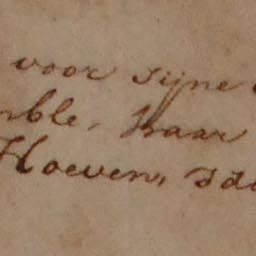 voor sijne
nble, haar
Hoeven, sda